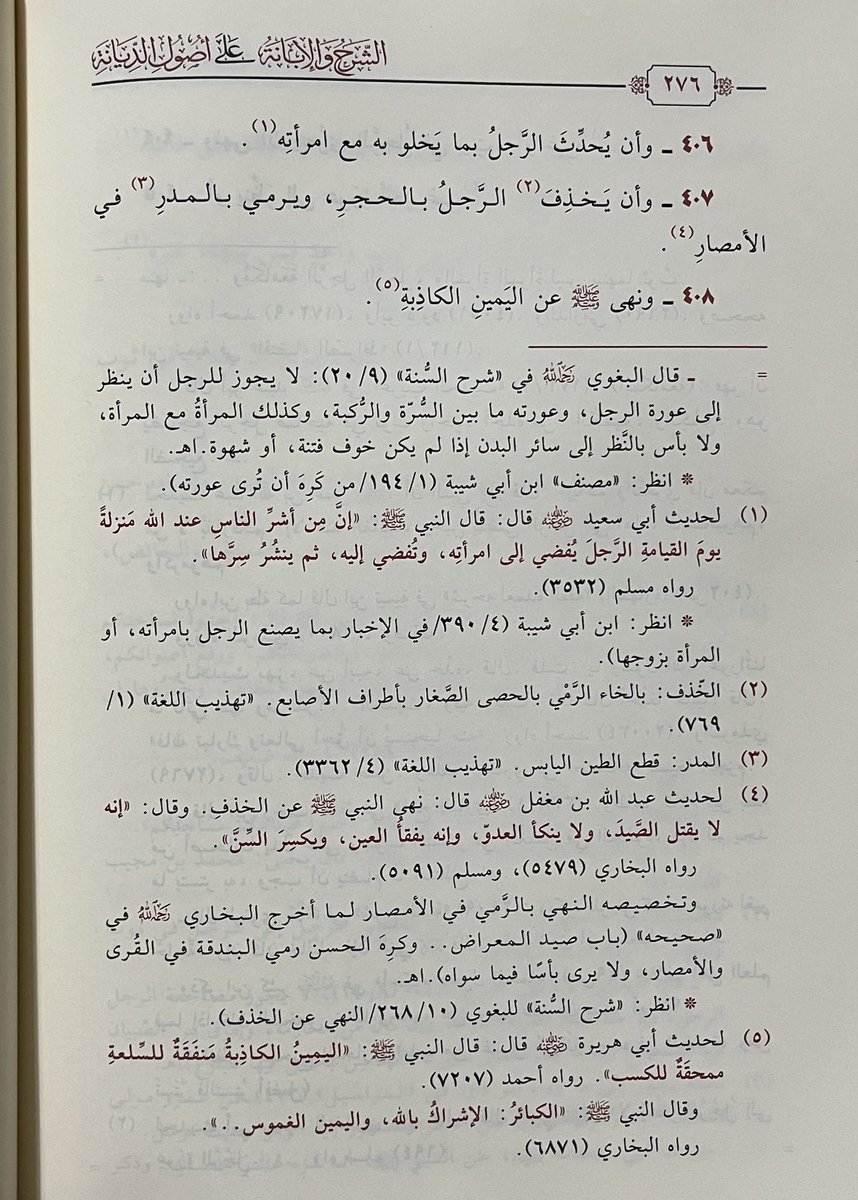 الشَّرحُ وَالإبَانَةُ عَلَى أُصُولِ الدِّيَانَةِ
٢٧٦
٤٠٦ ـ وأن يُحدِّثَ الرَّجلُ بما يَخلو به مع امرأتِه(١).
٤٠٧ ـ وأن يَخذِفَ(٢) الرَّجلُ بالحجرِ، ويرمي بالمدرِ(٣) في
الأمصارِ(٤).
٤٠٨ ـ ونهى ﷺ عن اليَمينِ الكاذِبةِ(٥).
= ـ قال البغوي رَحِمَهُ اللَّهُ في «شرح السُّنة» (٢٠/٩): لا يجوز للرجل أن ينظر
إلى عورة الرجل، وعورته ما بين السُّرّة والرُّكبة، وكذلك المرأةُ مع المرأة،
ولا بأس بالنَّظر إلى سائر البدن إذا لم يكن خوف فتنة، أو شهوة.اهـ.
* انظر: «مصنف» ابن أبي شيبة (١/ ١٩٤/من كَرِهَ أن تُرى عورته).
(١) لحديث أبي سعيد رَضِيَ اللَّهُ عَنْهُ قال: قال النبي ﷺ: «إنَّ مِن أشرِّ الناسِ عند الله مَنزلةً
يومَ القيامةِ الرَّجلَ يُفضي إلى امرأتِه، وتُفضي إليه، ثم ينشُرُ سِرَّها».
رواه مسلم (٣٥٣٢).
* انظر: ابن أبي شيبة (٤/ ٣٩٠/في الإخبار بما يصنع الرجل بامرأته، أو
المرأة بزوجها).
(٢) الخّذف: بالخاء الرَّمْي بالحصى الصَّغار بأطراف الأصابع. «تهذيب اللغة» (١/
٧٦٩).
(٣) المدر: قطع الطين اليابس. «تهذيب اللغة» (٤/ ٣٣٦٢).
(٤) لحديث عبد الله بن مغفل رَضِيَ اللَّهُ عَنْهُ قال: نهى النبي ﷺ عن الخذفِ. وقال: «إنه
لا يقتل الصَّيدَ، ولا ينكأ العدوّ، وإنه يفقأُ العين، ويكسِرَ السِّنَّ».
رواه البخاري (٥٤٧٩)، ومسلم (٥٠٩١).
وتخصيصه النهي بالرَّمي في الأمصار لما أخرج البخاري رَحِمَهُ اللَّهُ في
«صحيحه» (باب صيد المعراض.. وكرِهَ الحسن رمي البندقة في القُرى
والأمصار، ولا يرى بأسًا فيما سواه).اهـ.
* انظر: «شرح السُّنة» للبغوي (١٠/ ٢٦٨/النهي عن الخذف).
(٥) لحديث أبي هريرة رَضِيَ اللَّهُ عَنْهُ قال: قال النبي ﷺ: «اليمِينُ الكاذِبةُ مَنفَقَةٌ للسِّلعةِ
ممحقَةٌ للكسب». رواه أحمد (٧٢٠٧).
وقال النبي ﷺ: «الكبائرُ: الإشراكُ بالله، واليمين الغموس..».
رواه البخاري (٦٨٧١).
=